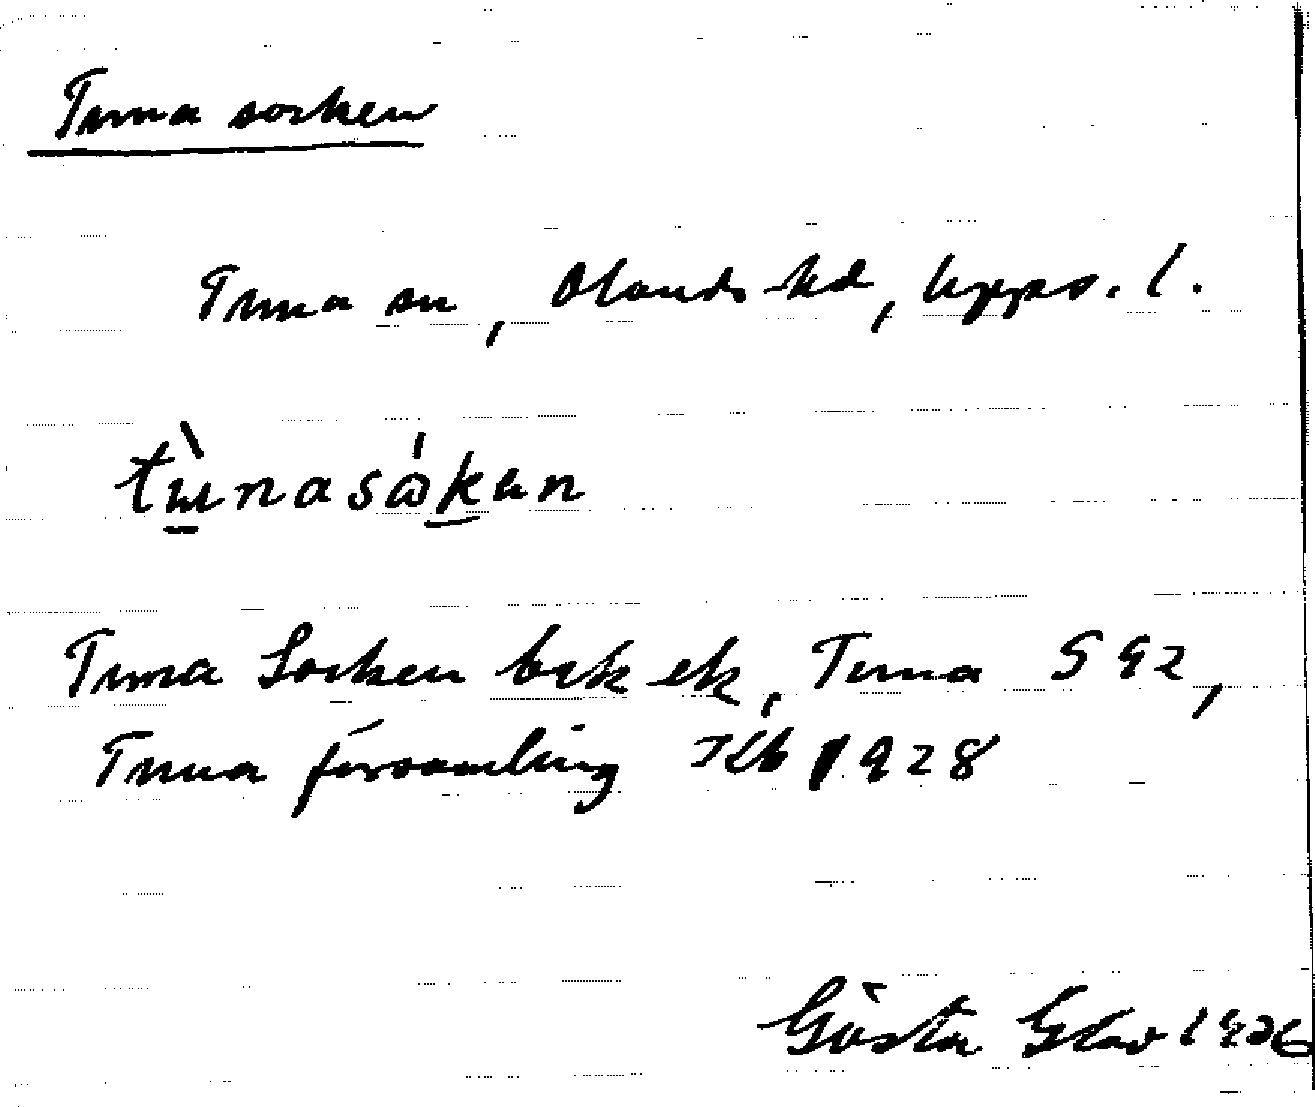 Tuna socken
Tuna sn, Olands hd, Upps. l.
tùnasåkan
Tuna Socken bsk ek, Tuna S 92,
Tuna församling Tlb 1928
Gösta 1936